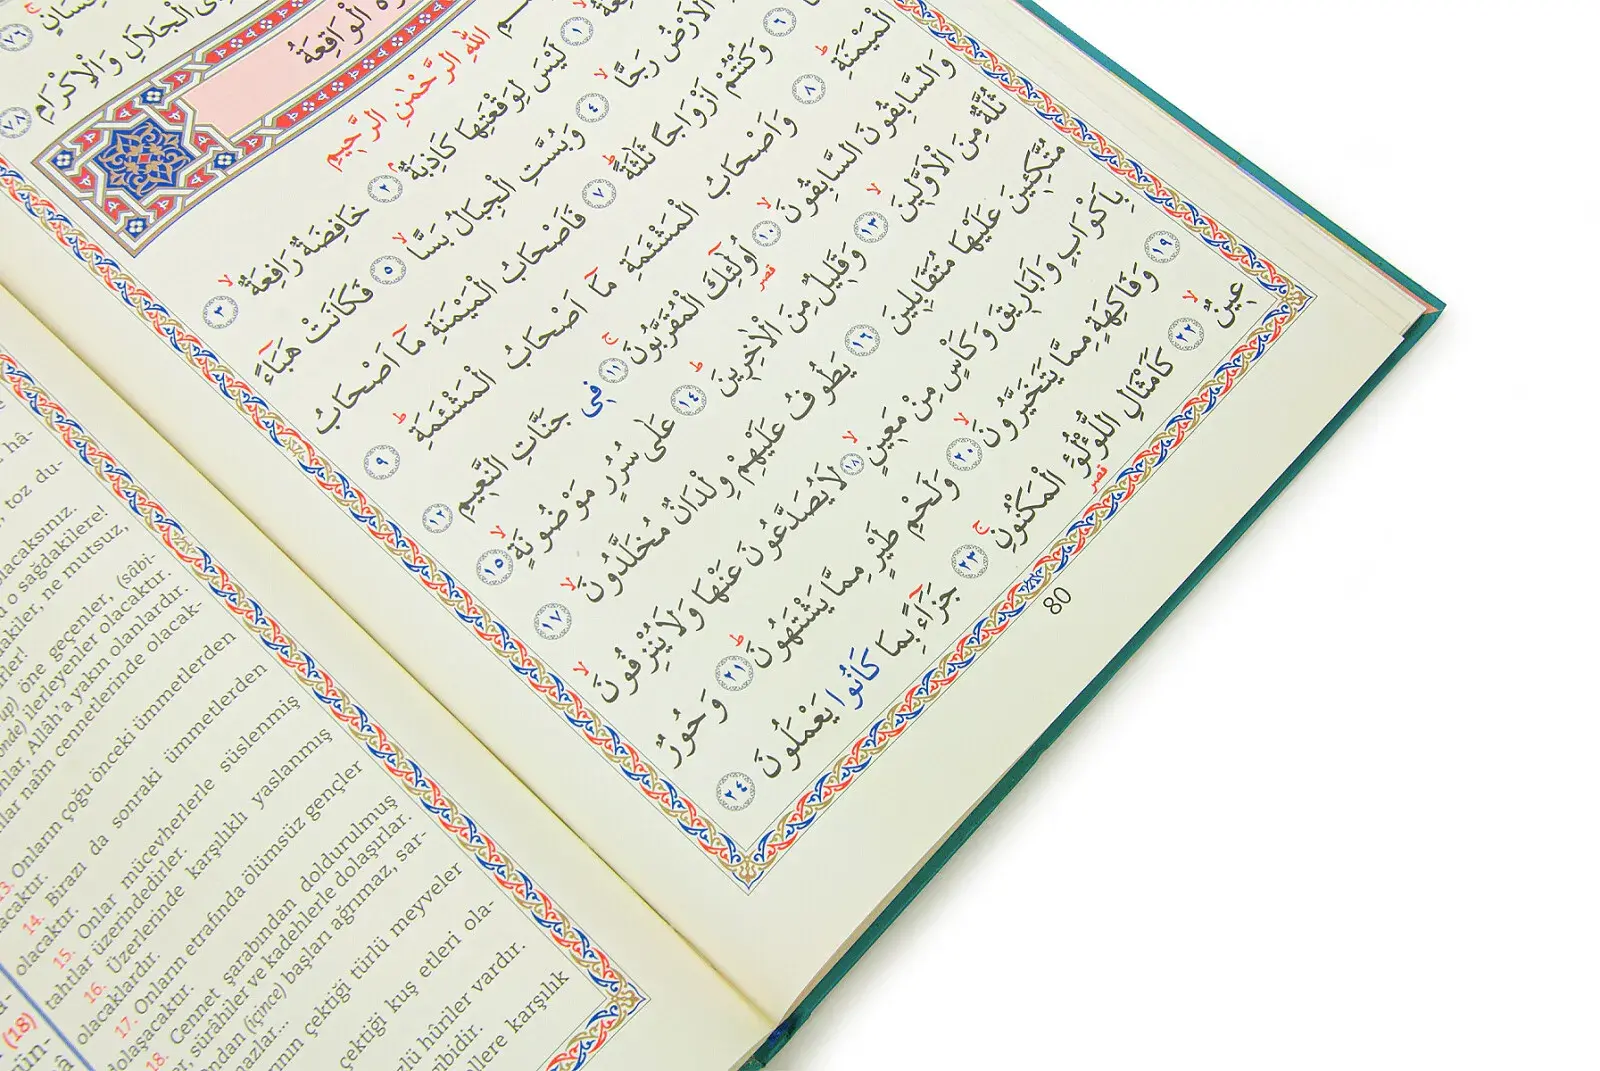 الْجَلَالِ وَالْاِكْرَامِ ﴿٧٨﴾
الْوَاقِعَةُ
اللّٰهِ الرَّحْمٰنِ الرَّحِيمِ
﴿١﴾ لَيْسَ لِوَقْعَتِهَا كَاذِبَةٌ ﴿٢﴾ خَافِضَةٌ رَافِعَةٌ ﴿٣﴾
الْاَرْضُ رَجًّا ﴿٤﴾ وَبُسَّتِ الْجِبَالُ بَسًّا ﴿٥﴾ فَكَانَتْ هَبَٓاءً
﴿٦﴾ وَكُنْتُمْ اَزْوَاجًا ثَلٰثَةً ﴿٧﴾ فَاَصْحَابُ الْمَيْمَنَةِ مَٓا اَصْحَابُ
الْمَيْمَنَةِ ﴿٨﴾ وَاَصْحَابُ الْمَشْئَمَةِ مَٓا اَصْحَابُ الْمَشْئَمَةِ ﴿٩﴾
وَالسَّابِقُونَ السَّابِقُونَ ﴿١٠﴾ اُولٰٓئِكَ الْمُقَرَّبُونَ ﴿١١﴾ فِى جَنَّاتِ النَّعِيمِ ﴿١٢﴾
ثُلَّةٌ مِنَ الْاَوَّلِينَ ﴿١٣﴾ وَقَلِيلٌ مِنَ الْاٰخِرِينَ ﴿١٤﴾ عَلٰى سُرُرٍ مَوْضُونَةٍ ﴿١٥﴾
مُتَّكِئِينَ عَلَيْهَا مُتَقَابِلِينَ ﴿١٦﴾ يَطُوفُ عَلَيْهِمْ وِلْدَانٌ مُخَلَّدُونَ ﴿١٧﴾
بِاَكْوَابٍ وَاَبَارِيقَ وَكَأْسٍ مِنْ مَعِينٍ ﴿١٨﴾ لَا يُصَدَّعُونَ عَنْهَا وَلَا يُنْزِفُونَ
﴿١٩﴾ وَفَاكِهَةٍ مِمَّا يَتَخَيَّرُونَ ﴿٢٠﴾ وَلَحْمِ طَيْرٍ مِمَّا يَشْتَهُونَ ﴿٢١﴾ وَحُورٌ
عِينٌ ﴿٢٢﴾ كَاَمْثَالِ اللُّؤْلُؤِ الْمَكْنُونِ ﴿٢٣﴾ جَزَٓاءً بِمَا كَانُوا يَعْمَلُونَ ﴿٢٤﴾
80
toz du-
olacaksınız.
o sağdakilere!
ne mutsuz,
öne geçenler, (sâbi-
ilerleyenler olacaktır.
Allâh'a yakın olanlardır.
naîm cennetlerinde olacak-
13. Onların çoğu önceki ümmetlerden
14. Birazı da sonraki ümmetlerden
olacaktır.
15. Onlar mücevherlerle süslenmiş
tahtlar üzerindedirler.
16. Üzerlerinde karşılıklı yaslanmış
olacaklardır.
17. Onların etrafında ölümsüz gençler
dolaşacaktır.
18. Cennet şarabından doldurulmuş
sürâhiler ve kadehlerle dolaşırlar.
(içince) başları ağrımaz, sar-
çektiği türlü meyveler
çektiği kuş etleri ola-
hûriler vardır.
karşılık
(18)